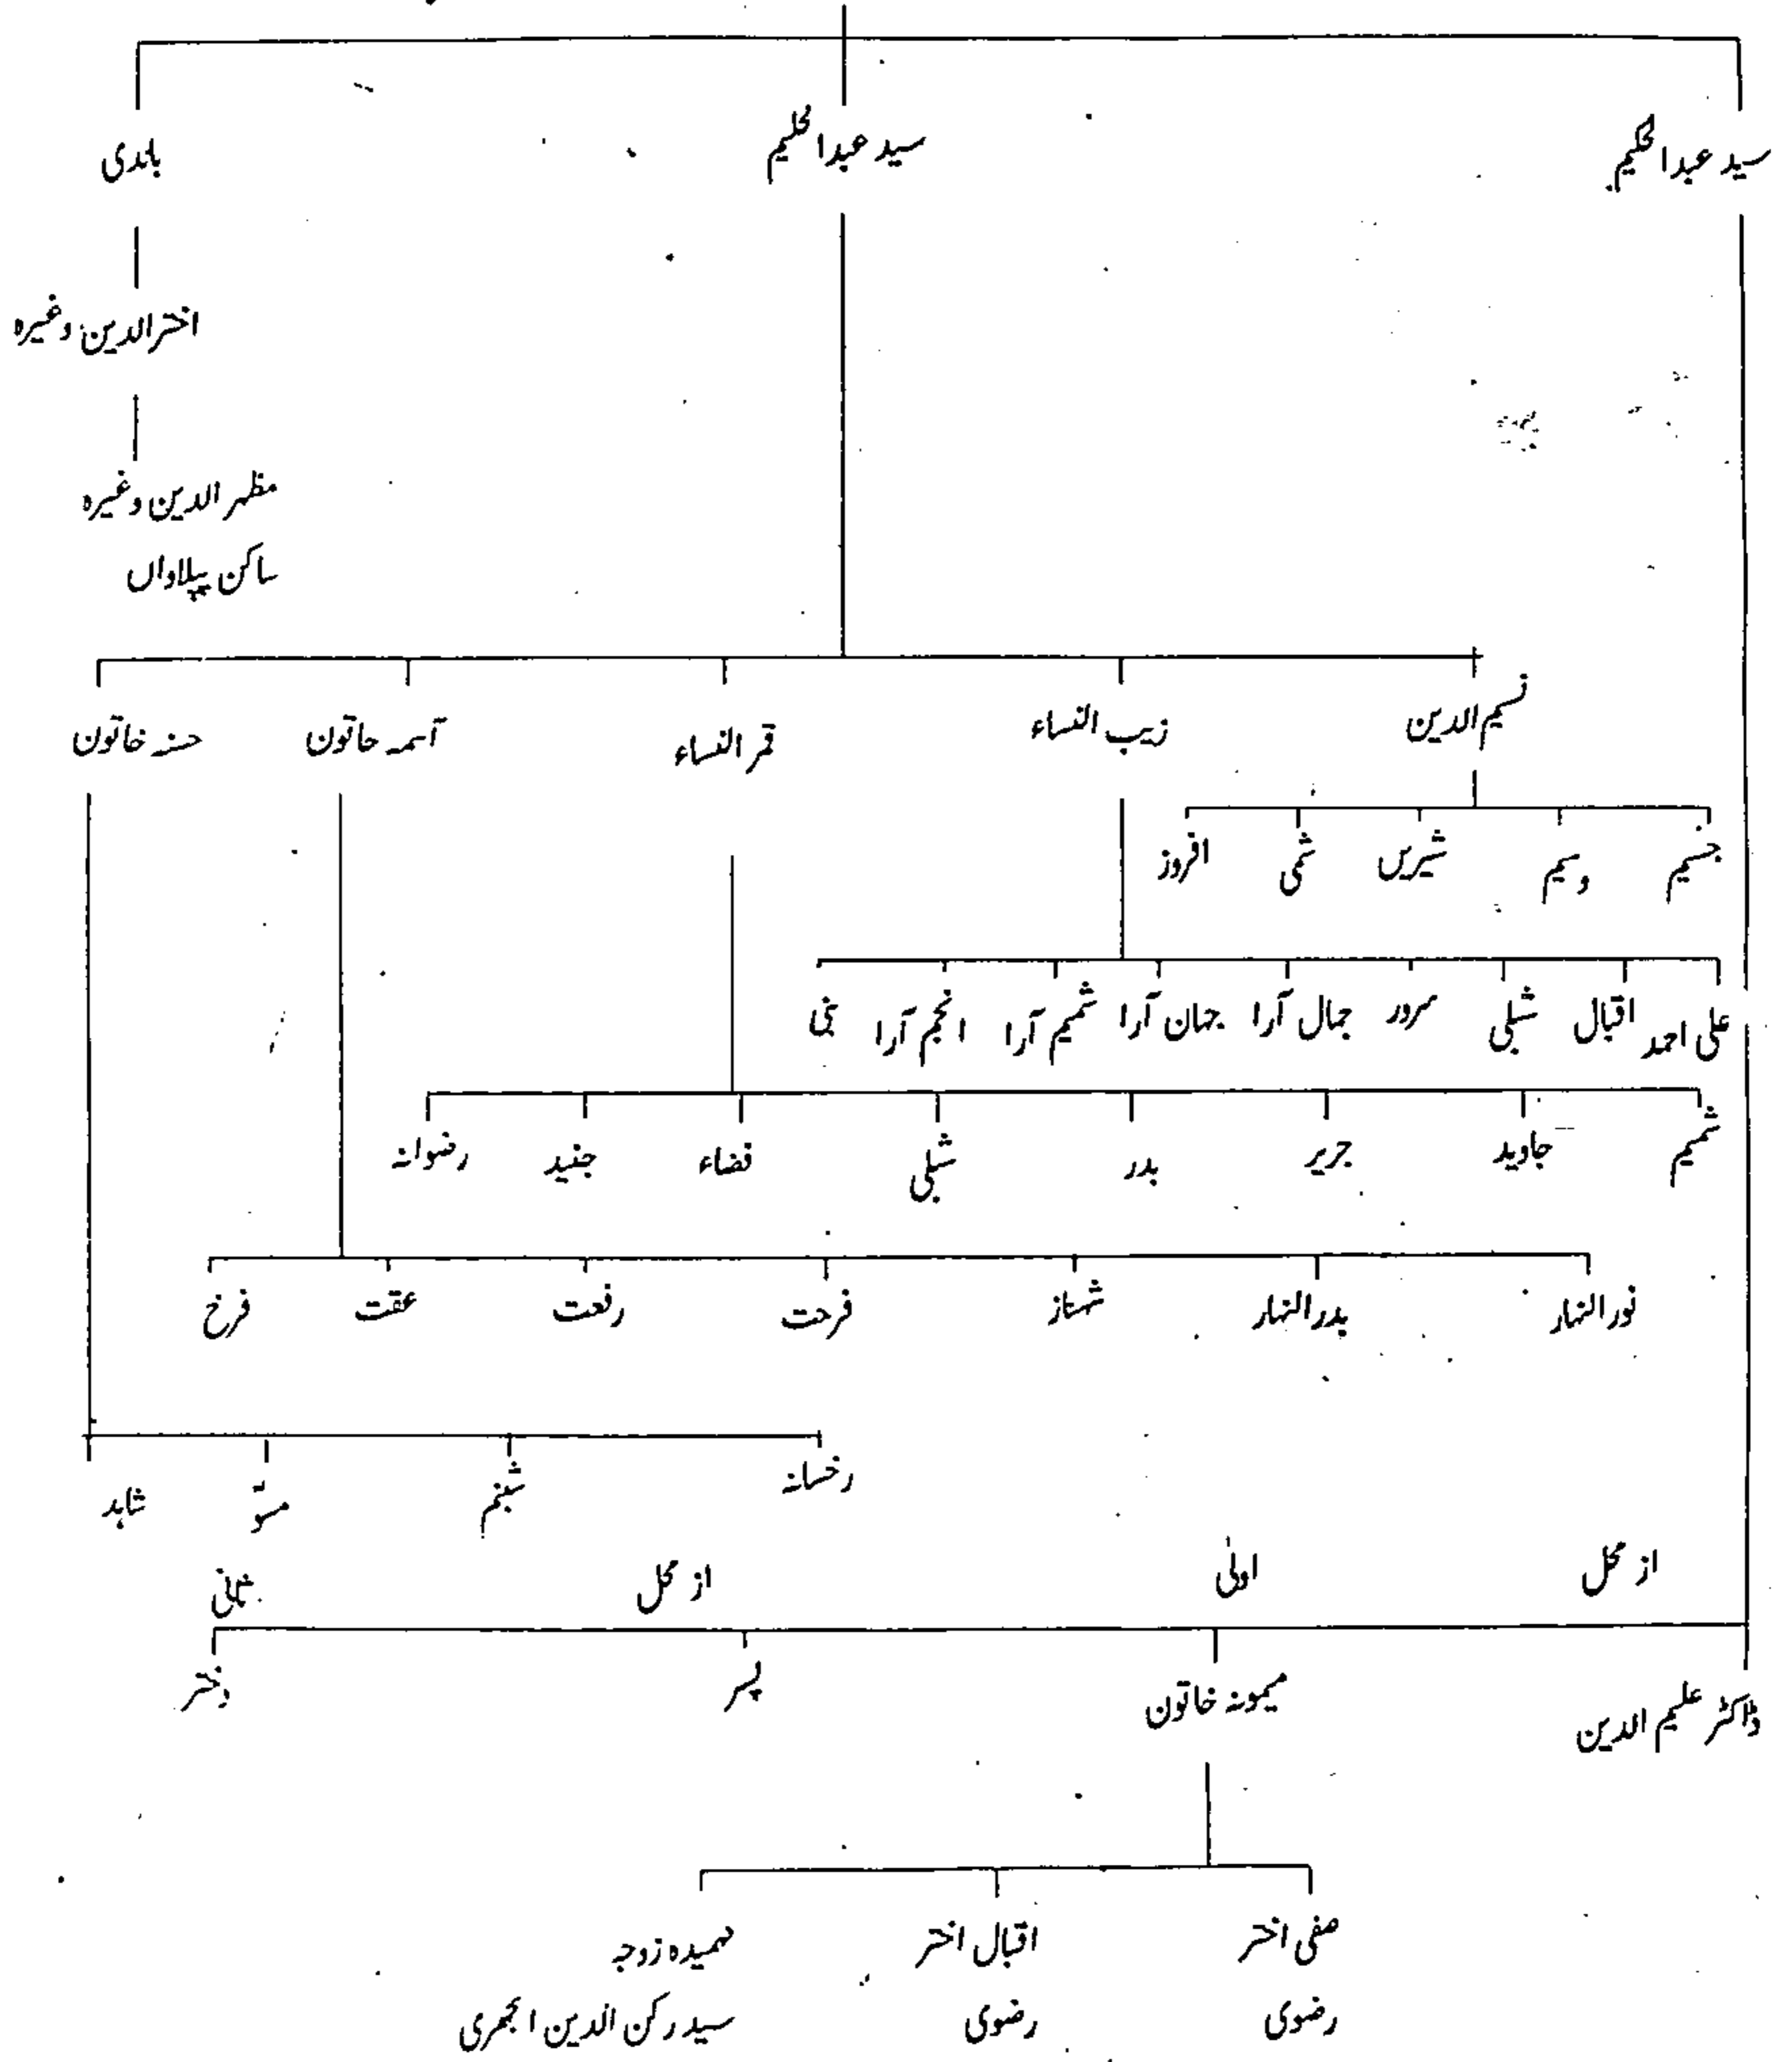 سید عبدالحکیم سید عبدالحلیم باندی
اخترالدین وغیرہ
مظہر الدین وغیرہ
ساکن پیپلاواں
نسیم الدین زیب النساء قمر النساء آسمہ خاتون حسنہ خاتون
جسیم وسیم شیریں شمی افروز
علی احمد اقبال شبلی سرور جمال آرا جہان آرا شمیم آرا انجم آرا
شمیم جاوید جریر بدر شبلی فضاء جنید رضوانہ
نورالنہار بدرالنہار شہناز فرحت رفعت عفت فرخ
رخسانہ شبنم مسّو شاہد
از محل اولیٰ از محل ثانی
ڈاکٹر علیم الدین میمونہ خاتون پسر دختر
صفی اختر اقبال اختر فہمیدہ زوجہ
رضوی رضوی سید رکن الدین اجمیری